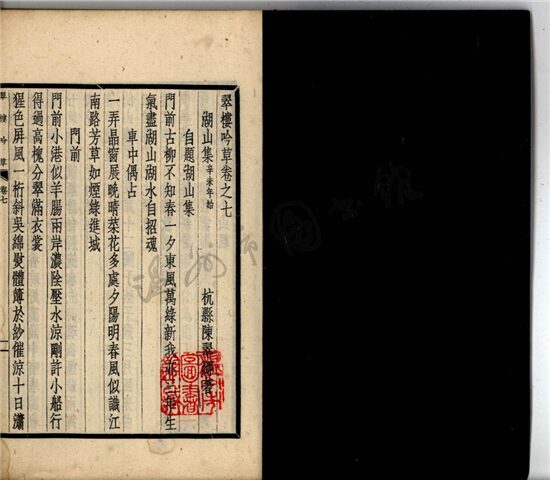 翠樓吟草卷之七
湖山集辛未年始 杭縣陳翠娜著
自題湖山集
門前古柳不知春一夕東風萬綠新我亦三生
氣盡湖山湖水自招魂
車中偶占
一弄晶窗展晚晴菜花多處夕陽明春風似識江
南路芳草如煙綠進城
門前
門前小港似羊腸兩岸濃陰壓水涼剛許小船行
得過高槐分翠滿衣裳
猩色屏風一桁斜吳綿熨體簿於紗催涼十日瀟
翠樓吟草 卷七 一